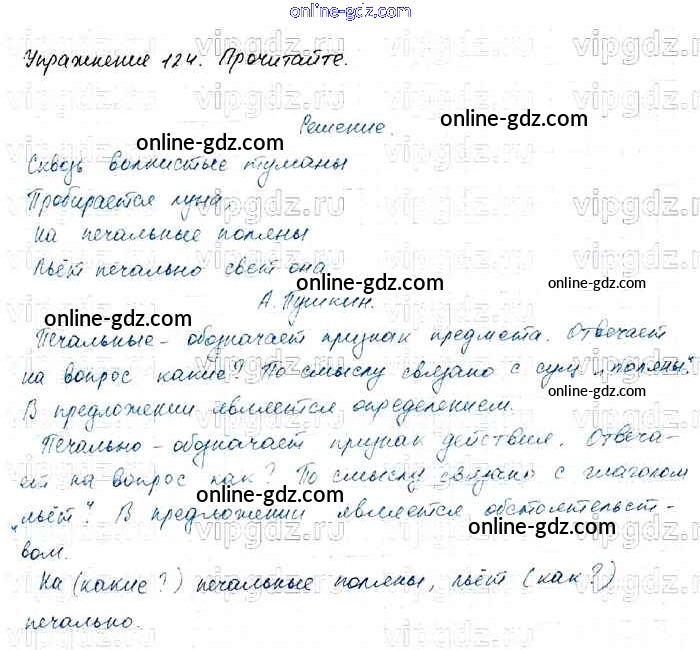 online-gdz.com
online-gdz.com
Упражнение 124. Прочитайте.
vipgdz.ru
online-gdz.com
Решение.
online-gdz.com
Сквозь волнистые туманы
Пробирается луна,
online-gdz.com
На печальные поляны
Льёт печально свет она
online-gdz.com
online-gdz.com
А. Пушкин.
Печальные - обозначает признак предмета. Отвечает
online-gdz.com
на вопрос какие? По смыслу связано с сущ. „поляны".
online-gdz.com
В предложении является определением.
Печально - обозначает признак действия. Отвеча-
ет на вопрос как? По смыслу связано с глаголом
online-gdz.com
online-gdz.com
„льёт". В предложении является обстоятельст-
вом.
online-gdz.com
На (какие?) печальные поляны, льёт (как?)
печально.